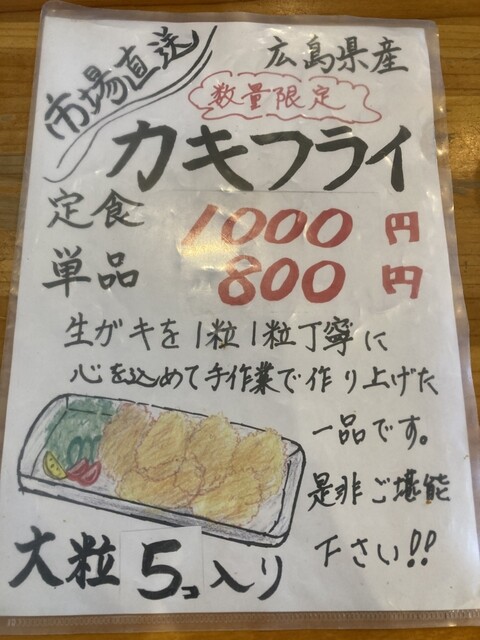 市場直送
広島県産
数量限定
カキフライ
定食 1000円
単品 800円
生ガキを1粒1粒丁寧に
心を込めて手作業で作り上げた
一品です。
是非ご堪能
下さい!!
大粒5コ入り